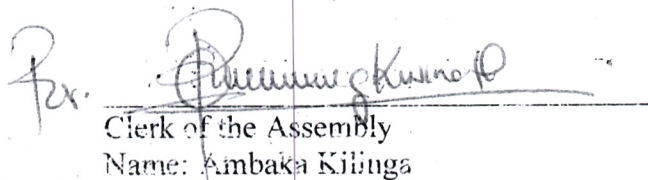 Clerk of the Assembly
Name: Ambaka Kilinga